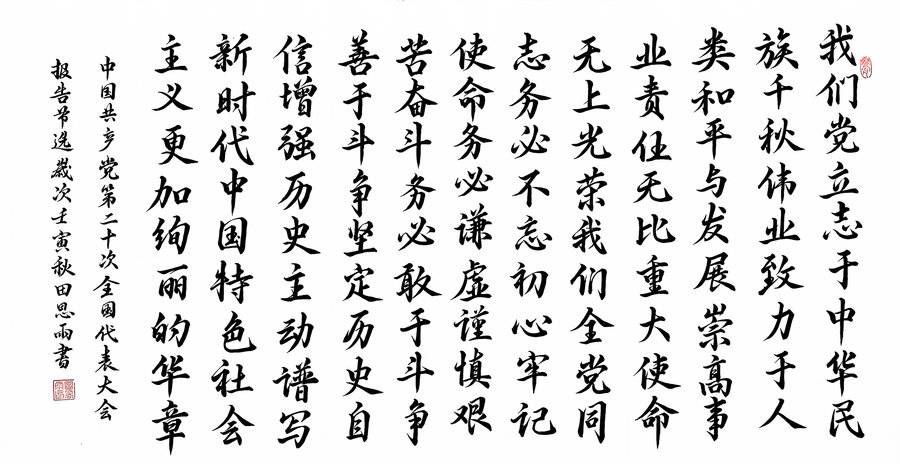 我们党立志于中华民
族千秋伟业致力于人
类和平与发展崇高事
业责任无比重大使命
无上光荣我们全党同
志务必不忘初心牢记
使命务必谦虚谨慎艰
苦奋斗务必敢于斗争
善于斗争坚定历史自
信增强历史主动谱写
新时代中国特色社会
主义更加绚丽的华章
中国共产党第二十次全国代表大会
报告节选岁次壬寅秋田思雨书